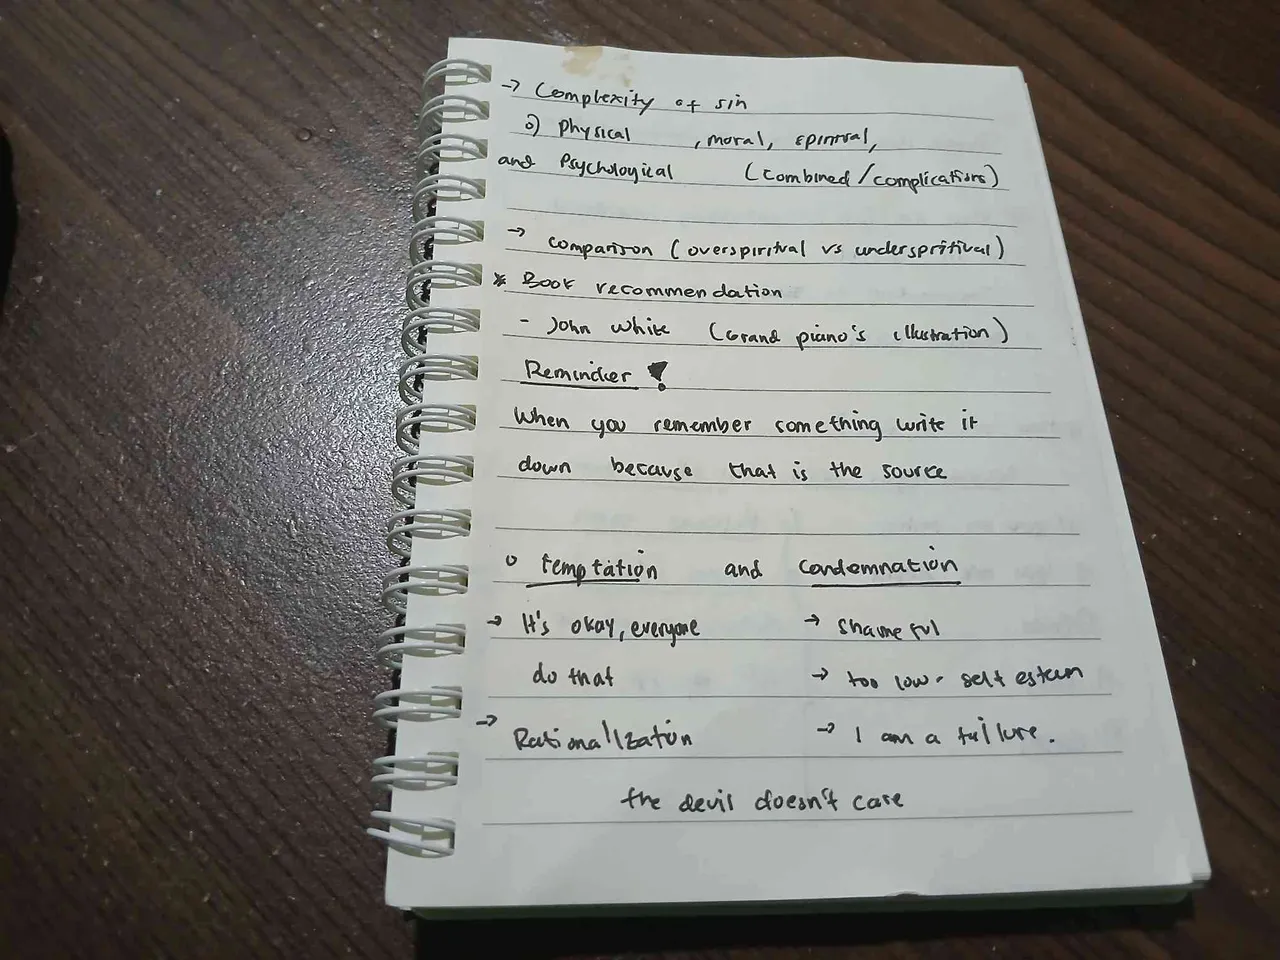 → Complexity of sin
o) Physical , moral, spiritual,
and Psychological (combined/complications)
→ comparison (overspiritual vs underspritiual)
* Book recommendation
- John White (Grand piano's illustration)
Reminder !
When you remember something write it
down because that is the source
o temptation and condemnation
→ It's okay, everyone → shameful
do that → too low - self esteem
→ Rationalization → I am a failure.
the devil doesn't care